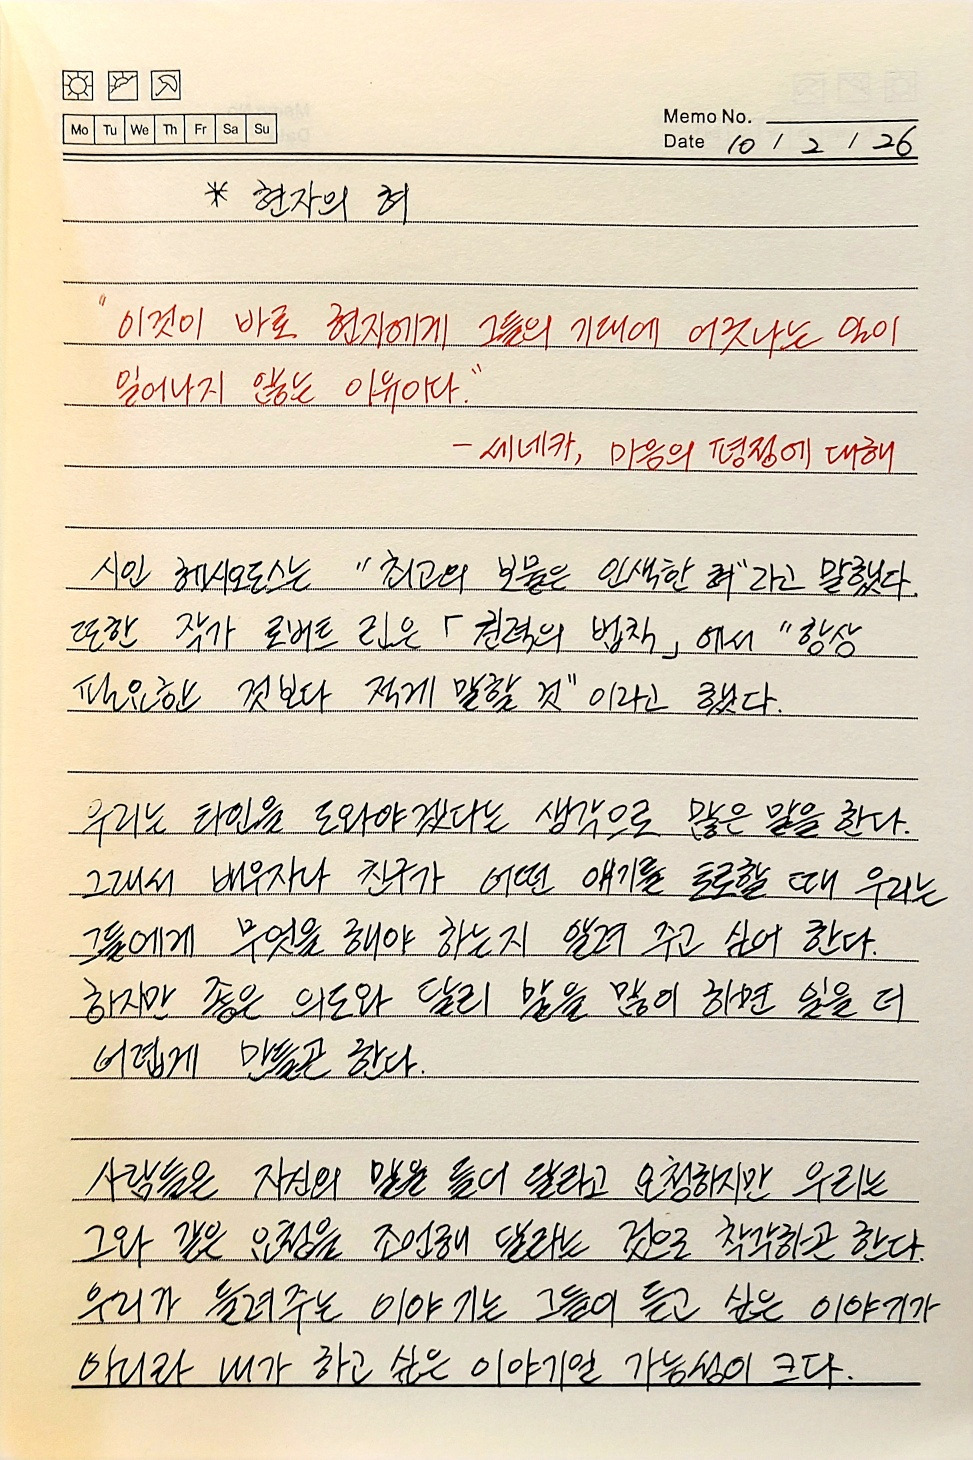 Mo Tu We Th Fr Sa Su
Memo No.
Date 10 / 2 / 26
* 현자의 혀
"이것이 바로 현자에게 그들의 기대에 어긋나는 일이
일어나지 않는 이유이다."
- 세네카, 마음의 평정에 대해
시인 헤시오도스는 "최고의 보물은 인색한 혀"라고 말했다.
또한 작가 로버트 그린은 「권력의 법칙」에서 "항상
필요한 것보다 적게 말할 것"이라고 했다.
우리는 타인을 도와야겠다는 생각으로 많은 말을 한다.
그래서 배우자나 친구가 어떤 얘기를 토로할 때 우리는
그들에게 무엇을 해야 하는지 알려 주고 싶어 한다.
하지만 좋은 의도와 달리 말을 많이 하면 일을 더
어렵게 만들곤 한다.
사람들은 자신의 말을 들어 달라고 요청하지만 우리는
그와 같은 요청을 조언해 달라는 것으로 착각하곤 한다.
우리가 들려주는 이야기는 그들이 듣고 싶은 이야기가
아니라 내가 하고 싶은 이야기일 가능성이 크다.